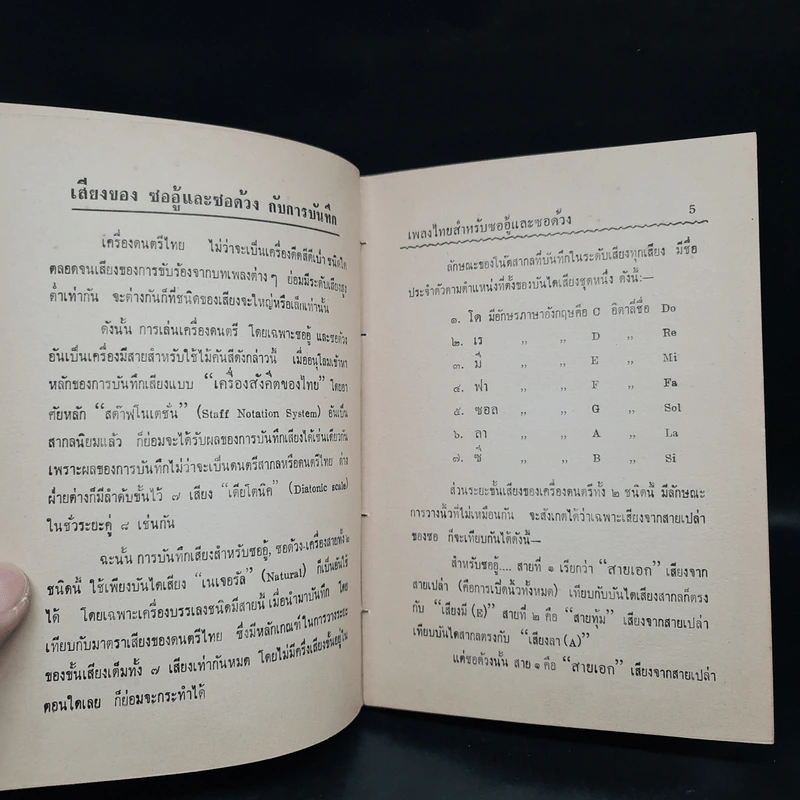 เสียงของ ซออู้และซอด้วง กับการบันทึก
เครื่องดนตรีไทย ไม่ว่าจะเป็นเครื่องดีดสีตีเป่า ชนิดใด
ตลอดจนเสียงของการขับร้องจากบทเพลงต่างๆ ย่อมมีระดับเสียงสูง
ต่ำเท่ากัน จะต่างกันก็ที่ชนิดของเสียงจะใหญ่หรือเล็กเท่านั้น
ดังนั้น การเล่นเครื่องดนตรี โดยเฉพาะซออู้ และซอด้วง
อันเป็นเครื่องมีสายสำหรับใช้ไม้คันสีดังกล่าวนี้ เมื่ออนุโลมเข้าหา
หลักของการบันทึกเสียงแบบ “เครื่องสังคีตของไทย” โดยอา
ศัยหลัก “สต๊าฟฺโนเตชั่น” (Staff Notation System) อันเป็น
สากลนิยมแล้ว ก็ย่อมจะได้รับผลของการบันทึกเสียงได้เช่นเดียวกัน
เพราะผลของการบันทึกไม่ว่าจะเป็นดนตรีสากลหรือดนตรีไทย ต่าง
ฝ่ายต่างก็มีลำดับขั้นไว้ ๗ เสียง “เดียโตนิค” (Diatonic scale)
ในชั่วระยะคู่ ๘ เช่นกัน
ฉะนั้น การบันทึกเสียงสำหรับซออู้, ซอด้วง-เครื่องสายทั้ง ๒
ชนิดนี้ ใช้เพียงบันไดเสียง “เนเจอรัล” (Natural) ก็เป็นอันใช้
ได้ โดยเฉพาะเครื่องบรรเลงชนิดมีสายนี้ เมื่อนำมาบันทึก โดย
เทียบกับมาตราเสียงของดนตรีไทย ซึ่งมีหลักเกณฑ์ในการวางระยะ
ของขั้นเสียงเต็มทั้ง ๗ เสียงเท่ากันหมด โดยไม่มีครึ่งเสียงขั้นอยู่ใน
ตอนใดเลย ก็ย่อมจะกระทำได้
เพลงไทยสำหรับซออู้และซอด้วง 5
ลักษณะของโน๊ตสากลที่บันทึกในระดับเสียงทุกเสียง มีชื่อ
ประจำตัวตามตำแหน่งที่ตั้งของบันไดเสียงชุดหนึ่ง ดังนี้:—
๑. โด มีอักษรภาษาอังกฤษคือ C อิตาลีชื่อ Do
๒. เร ,, ,, D ,, Re
๓. มี ,, ,, E ,, Mi
๔. ฟา ,, ,, F ,, Fa
๕. ซอล ,, ,, G ,, Sol
๖. ลา ,, ,, A ,, La
๗. ซี ,, ,, B ,, Si
ส่วนระยะขั้นเสียงของเครื่องดนตรีทั้ง ๒ ชนิดนี้ มีลักษณะ
การวางนิ้วที่ไม่เหมือนกัน จะสังเกตได้ว่าเฉพาะเสียงจากสายเปล่า
ของซอ ก็จะเทียบกันได้ดังนี้—
สำหรับซออู้.... สายที่ ๑ เรียกว่า “สายเอก” เสียงจาก
สายเปล่า (คือการเปิดนิ้วทั้งหมด) เทียบกับบันไดเสียงสากลก็ตรง
กับ “เสียงมี (E)” สายที่ ๒ คือ “สายทุ้ม” เสียงจากสายเปล่า
เทียบบันไดสากลตรงกับ “เสียงลา (A)”
แต่ซอด้วงนั้น สาย ๑ คือ “สายเอก” เสียงจากสายเปล่า